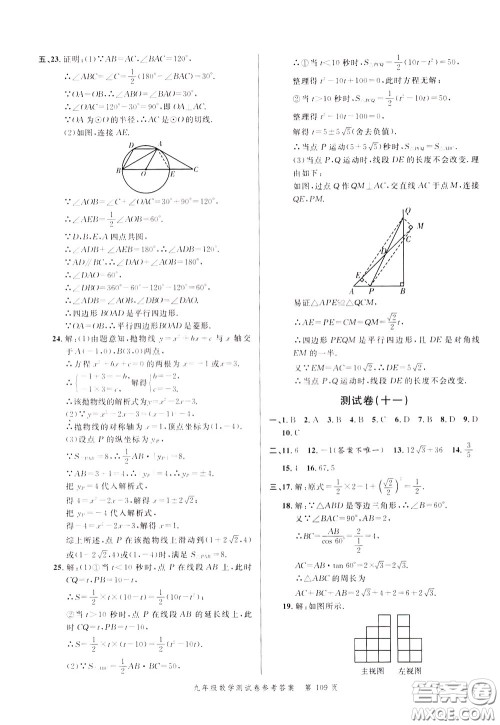 五、23. 证明:(1)∵AB=AC,∠BAC=120°,
∴∠ABC=∠C=1/2(180°-∠BAC)=30°.
∵OA=OB,∴∠OAB=∠OBA=30°.
∴∠OAC=120°-30°=90°.
∵OA 为⊙O的半径,∴AC 是⊙O的切线.
(2)如图,连接 AE.
D A B O E C
∵∠AOB=∠C+∠OAC=30°+90°=120°,
∴∠AEB=1/2∠AOB=60°.
∵D,B,E,A 四点共圆,
∴∠ADB+∠AEB=180°.∴∠ADB=120°.
∵AD∥BC,∴∠DAO+∠AOB=180°.
∴∠DAO=60°.
∴∠DBO=360°-60°-120°-120°=60°.
∴∠ADB=∠AOB,∠DAO=∠DBO.
∴四边形 BOAD 是平行四边形.
∵OA=OB,∴平行四边形 BOAD 是菱形.
24. 解:(1)由题意知,抛物线 y=x²+bx+c 与 x 轴交
于 A(-1,0),B(3,0)两点,
∴方程 x²+bx+c=0 的两根为 x=-1或x=3.
∴{-1+3=-b, -1×3=c. ∴{b=-2, c=-3.
∴该抛物线的解析式为 y=x²-2x-3.
(2)∵y=x²-2x-3=(x-1)²-4,
∴抛物线的对称轴为 x=1,顶点坐标为(1,-4).
(3)设点 P 的纵坐标为 yP.
∵S△PAB=8,∴1/2AB·|yP|=8.
∵AB=3+1=4,∴|yP|=4.∴yP=±4.
把 yP=4 代入解析式,
得 4=x²-2x-3,解得 x=1±2√2.
把 yP=-4 代入解析式,
得-4=x²-2x-3,解得 x=1.
综上所述,点 P 在该抛物线上滑动到(1+2√2,4)
或(1-2√2,4)或(1,-4)时,满足 S△PAB=8.
25. 解:(1)①当 t<10 秒时,点 P 在线段 AB 上,此时
CQ=t,PB=10-t,
∴S=1/2×t×(10-t)=1/2(10t-t²).
②当 t>10 秒时,点 P 在线段 AB 的延长线上,此时
CQ=t,PB=t-10,
∴S=1/2×t×(t-10)=1/2(t²-10t).
(2)∵S△ABC=1/2AB·BC=50,
∴①当 t<10 秒时,S△PCQ=1/2(10t-t²)=50,
整理得 t²-10t+100=0,此时方程无解;
②当 t>10 秒时,S△PCQ=1/2(t²-10t)=50,
整理得 t²-10t-100=0,
解得 t=5±5√5(舍去负值).
∴当点 P 运动(5+5√5)秒时,S△PCQ=S△ABC.
(3)当点 P、Q 运动时,线段 DE 的长度不会改变.理
由如下:
如图,过点 Q 作 QM⊥AC,交直线 AC 于点 M,连接
QE,PM.
Q M C D E A P B
易证△APE≌△QCM,
∴AE=PE=CM=QM=√2/2t.
∴四边形 PEQM 是平行四边形,且 DE 是对角线
EM 的一半.
又∵EM=AC=10√2,∴DE=5√2.
∴当点 P、Q 运动时,线段 DE 的长度不会改变.
测试卷(十一)
一、1. B 2. A 3. A 4. B 5. C 6. D 7. D 8. D 9. D
10. C
二、11. 6 12. -1(答案不唯一) 13. 12√3+36 14. 3/5
15. 1 16. 67.5
三、17. 解:原式=1/2×2-1+(√2/2)²=1/2.
18. 解:∵△ABD 是等边三角形,∴∠B=60°.
又∵∠BAC=90°,AB=2,
∴BC=AB/cos 60°=2/(1/2)=4.
AC=AB·tan 60°=2×√3=2√3.
∴△ABC 的周长为
AC+BC+AB=2√3+4+2=6+2√3.
19. 解:如图所示.
主视图 左视图
九年级数学测试卷参考答案 第 109 页